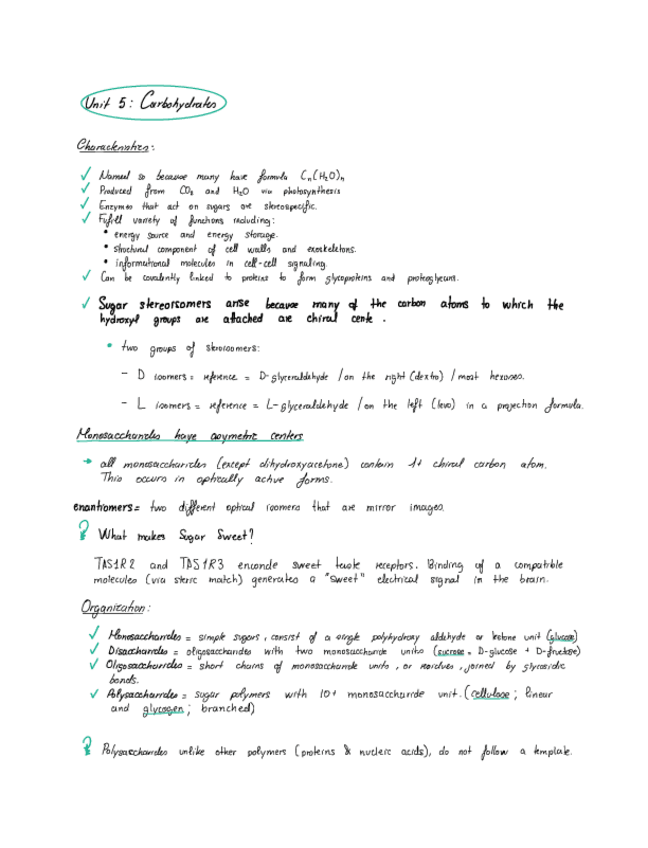 Unit 5: Carbohydrates
Characteristics:
✓ Named so because many have formula Cn(H2O)n
✓ Produced from CO2 and H2O via photosynthesis
✓ Enzymes that act on sugars are stereospecific.
✓ Fulfill variety of functions including:
• energy source and energy storage.
• structural component of cell walls and exoskeletons.
• informational molecules in cell-cell signaling.
✓ Can be covalently linked to proteins to form glycoproteins and proteoglycans.
✓ Sugar stereoisomers arise because many of the carbon atoms to which the
hydroxyl groups are attached are chiral cente .
• two groups of stereoisomers:
- D isomers = reference = D-glyceraldehyde / on the right (dextro) / most hexoses.
- L isomers = reference = L-glyceraldehyde / on the left (levo) in a projection formula.
Monosaccharides have asymetric centers
→ all monosaccharides (except dihydroxyacetone) contain 1+ chiral carbon atom.
This occurs in optically active forms.
enantiomers = two different optical isomers that are mirror images.
? What makes Sugar Sweet?
TAS1R2 and TAS1R3 enconde sweet taste receptors. Binding of a compatible
molecules (via steric match) generates a "sweet" electrical signal in the brain.
Organization:
✓ Monosaccharides = simple sugars, consist of a single polyhydroxy aldehyde or ketone unit (glucose)
✓ Disaccharides = oligosaccharides with two monosaccharide units (sucrose = D-glucose + D-fructose)
✓ Oligosaccharides = short chains of monosaccharide units, or residues, joined by glycosidic
bonds.
✓ Polysaccharides = sugar polymers with 10+ monosaccharide unit. (cellulose; linear
and glycogen; branched)
? Polysaccharides unlike other polymers (proteins & nucleic acids), do not follow a template.